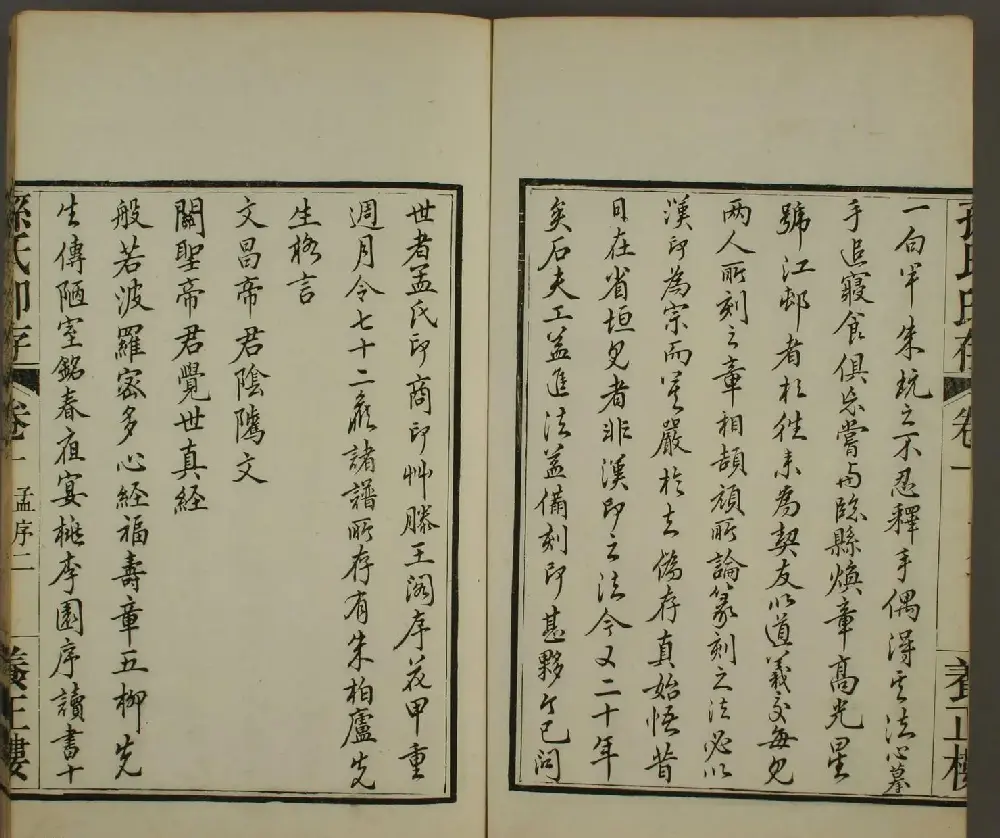 一句半朱玩之不忍釋手偶得其法心摹
手追寢食俱忘嘗与臨縣煥章高光星
號江邨者於往来為契友以道義交每見
兩人所刻之章相頡頏所論篆刻之法必以
漢印為宗而其嚴於去偽存真始悟昔
日在省垣見者非漢印之法今又二十年
矣石夫工益進法益備刻印甚夥今已問
世者孟氏印商印艸滕王阁序花甲重
週月令七十二候諸譜所存有朱柏廬先
生格言
文昌帝君陰隲文
關聖帝君覺世真経
般若波羅密多心経福壽章五柳先
生傳陋室銘春夜宴桃李園序讀書十
孫氏印存
卷一
孟序二
養正樓